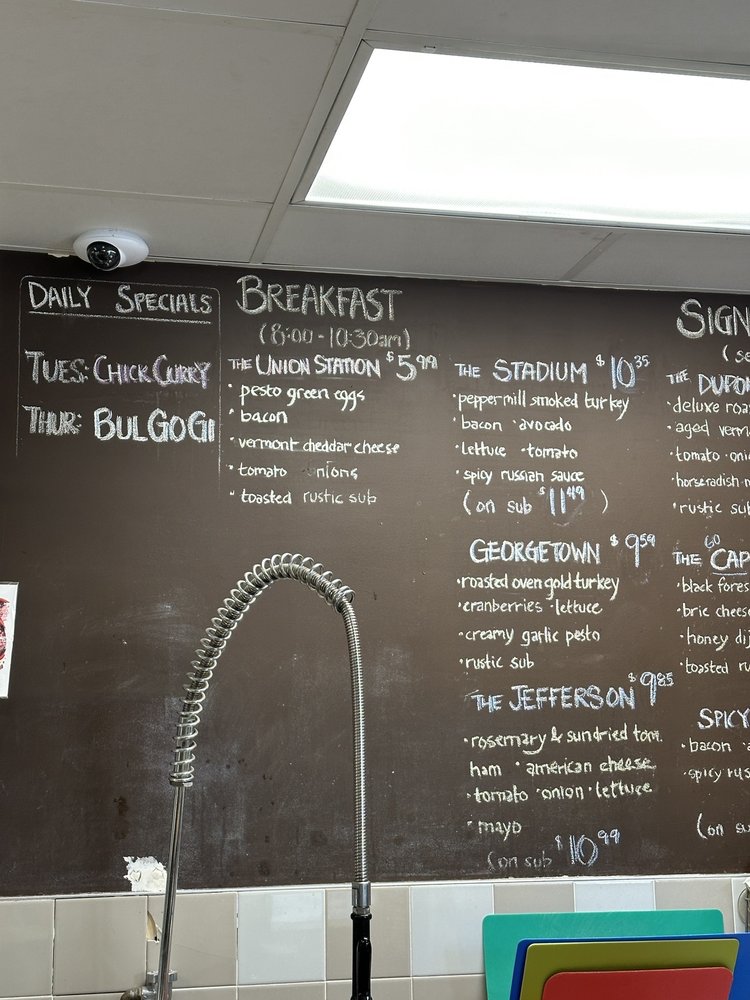 DAILY SPECIALS
TUES: CHICK CURRY
THUR: BULGOGI
BREAKFAST
(8:00 - 10:30am)
THE UNION STATION $5.99
· pesto green eggs
· bacon
· vermont cheddar cheese
· tomato onions
· toasted rustic sub
THE STADIUM $10.35
· peppermill smoked turkey
· bacon · avocado
· lettuce · tomato
· spicy russian sauce
(on sub $11.49)
GEORGETOWN $9.59
· roasted oven gold turkey
· cranberries · lettuce
· creamy garlic pesto
· rustic sub
THE JEFFERSON $9.85
· rosemary & sundried tom.
ham · american cheese
· tomato · onion · lettuce
· mayo
(on sub $10.99
SIGN
(se
THE DUPON
· deluxe roa
· aged verm
· tomato · oni
· horseradish m
· rustic sub
GO
THE CAP
· black fores
· bric cheese
· honey dij
· toasted ru
SPICY
· bacon · a
· spicy rus
(on su